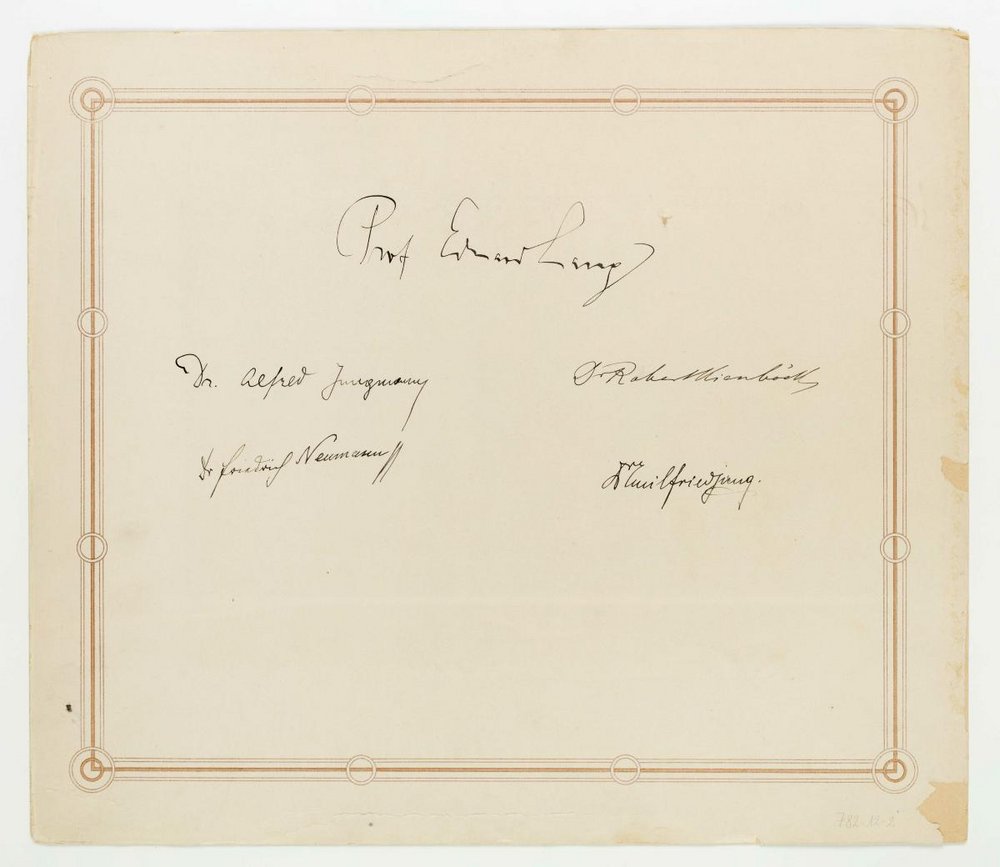 Prof Eduard Lang
Dr. Alfred Jungmann
Dr Robert Kienböck
Dr Friedrich Neumann
Dr Emil Friedjung.
782-12-2